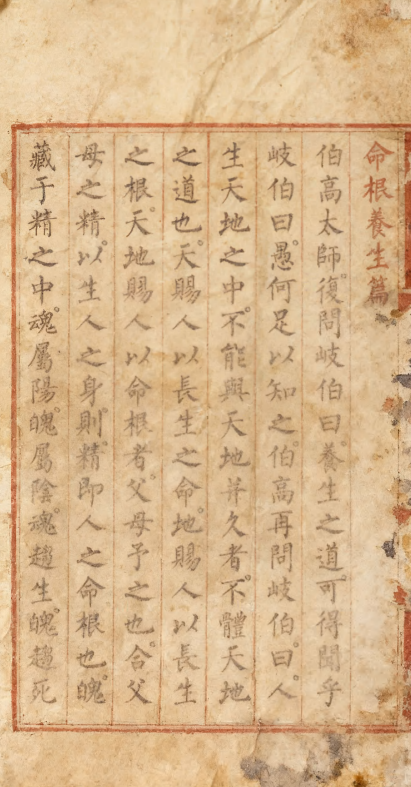 命根養生篇
伯高太師復問岐伯曰養生之道可得聞乎
岐伯曰愚何足以知之伯高再問岐伯曰人
生天地之中不能與天地并久者不體天地
之道也天賜人以長生之命地賜人以長生
之根天地賜人以命根者父母予之也合父
母之精以生人之身則精即人之命根也魄
藏于精之中魂屬陽魄屬陰魂趨生魄趨死